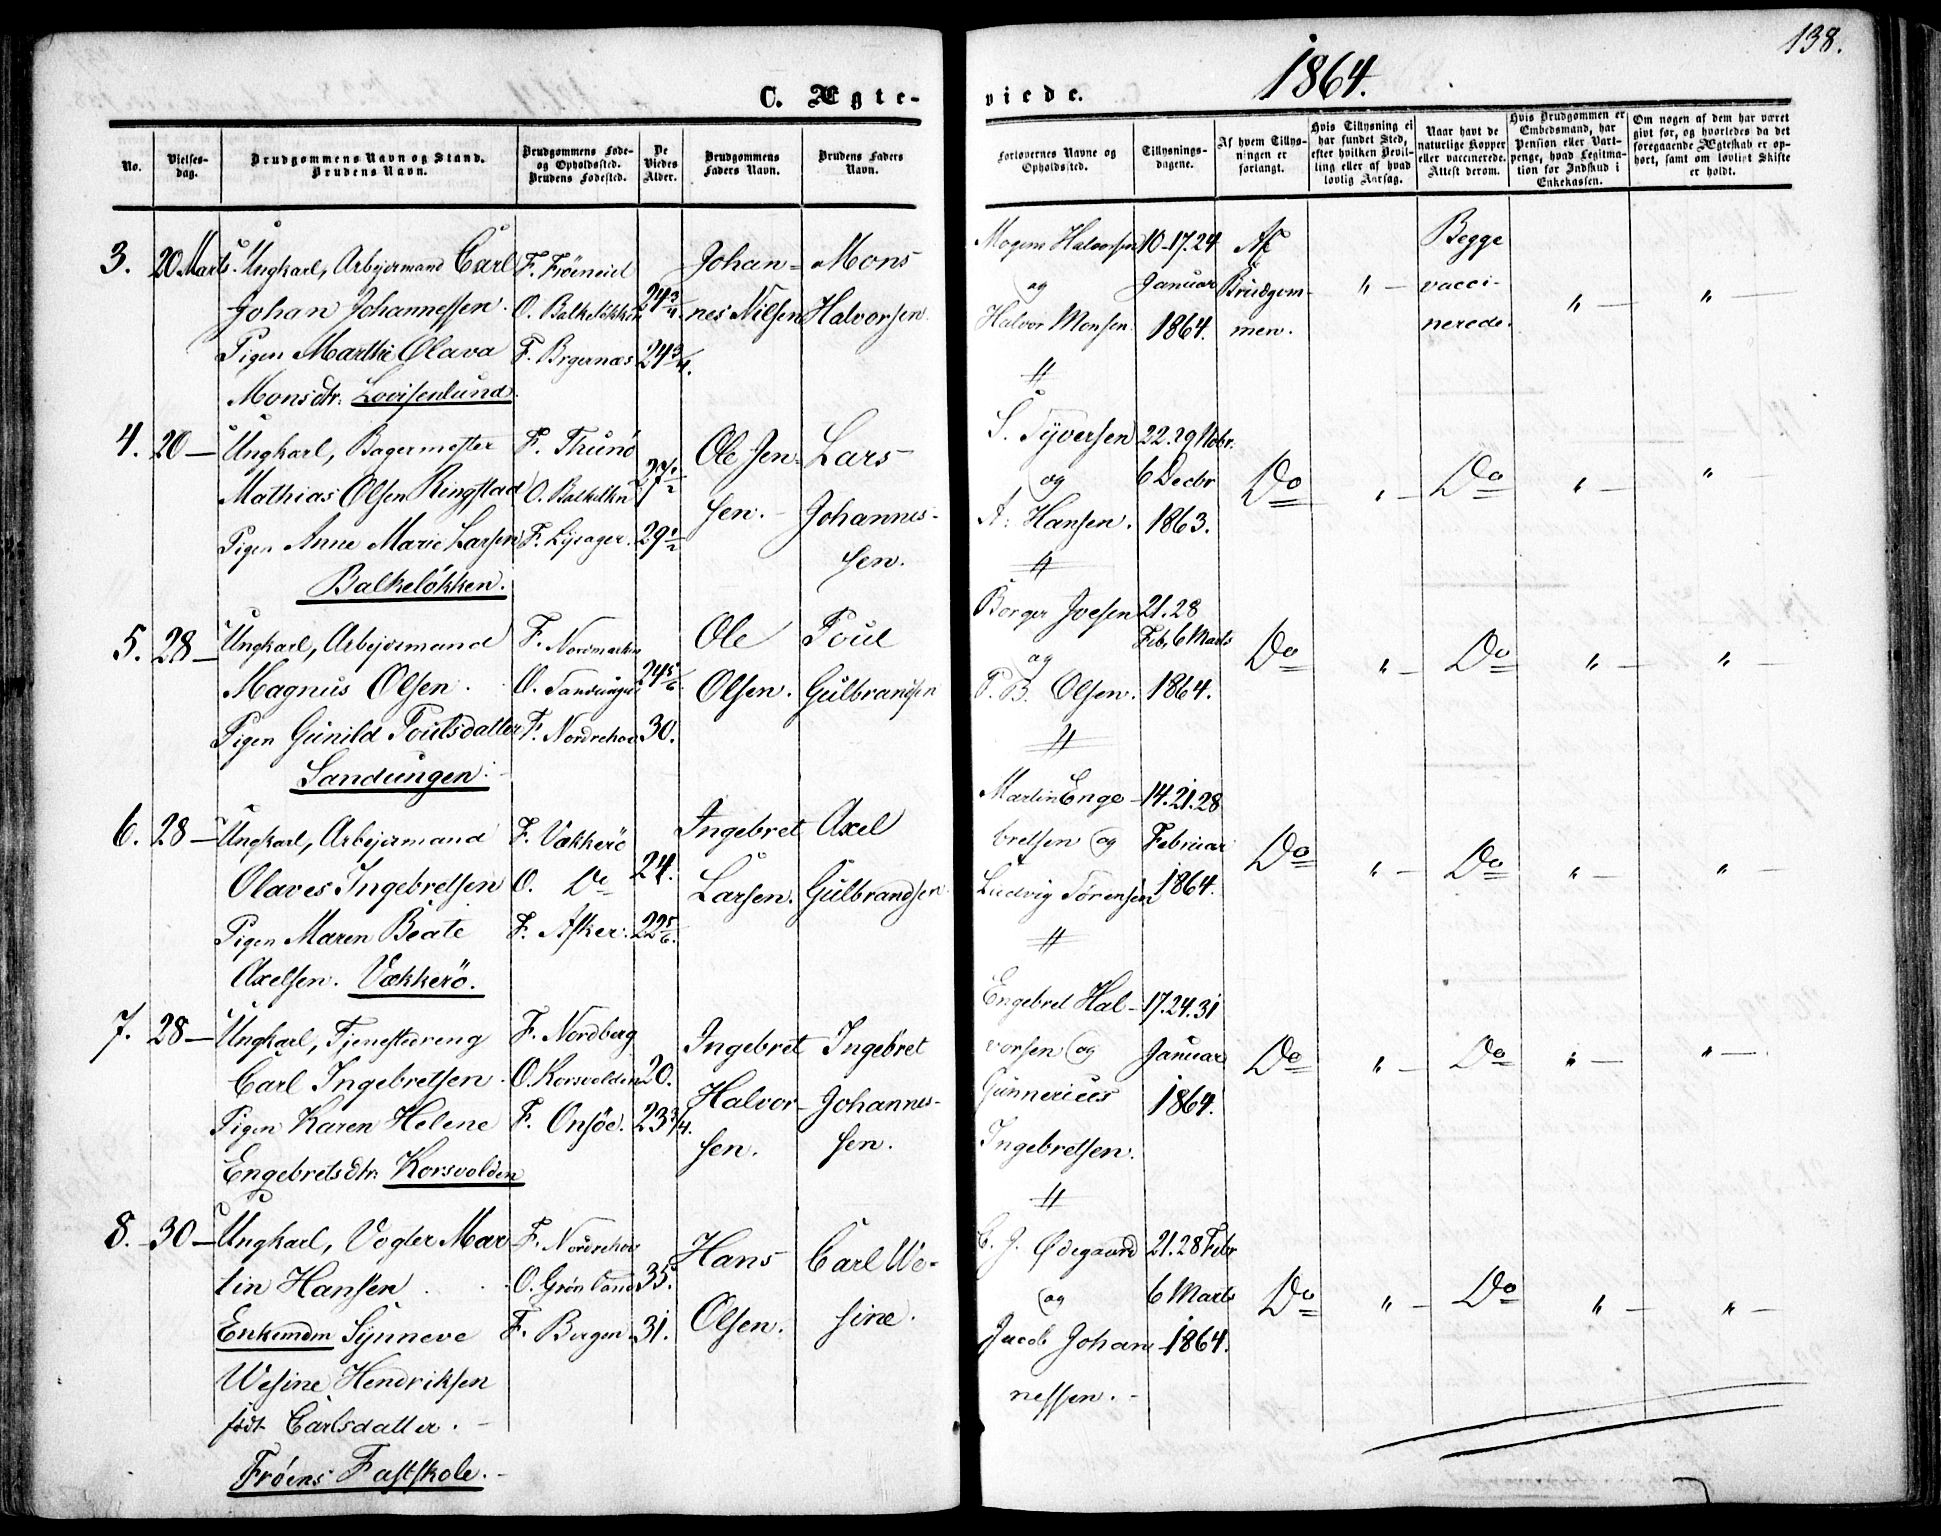 138.
1864.
C. Ægte-
viede.
No.
Vielses-
dag.
Brudgommens Navn og Stand.
Brudens Navn.
Brudgommens Føde-
og Opholdssted.
Brudens Fødested.
De
Viedes
Alder.
Brudgommens
Faders Navn.
Brudens Faders
Navn.
Forlovernes Navne og
Opholdssted.
Tillysnings-
dagene.
Af hvem Tillys-
ningen er
forlangt.
Hvis Tillysning ei
har fundet Sted,
efter hvilken Bevil-
ling eller af hvad
lovlig Aarsag.
Naar havt de
naturlige Kopper
eller vaccinerede.
Attest derom.
Hvis Brudgommen er
Embedsmand, har
Pension eller Vart-
penge, hvad Legitima-
tion for Indskud i
Enkekassen.
Om nogen af dem har været
gift før, og hvorledes da det
foregaaende Ægteskab er op-
hørt, samt om lovligt Skifte
er holdt.
3.
20 Marts
Ungkarl, Arbejdsmand Carl
Johan Johannessen.
Pigen Marthe Olava
Monsdtr. Lovisenlund.
F. Fröensid
O. Balkelökken
F. Brgernæs
24 3/4.
24 3/4.
Johan-
nes Nilsen
Mons
Halvorsen.
Mogens Halvorsen
og
Halvor Monsen.
10-17.24
Januar
1864.
Af
Brudgom-
men.
" -
Begge
vacci-
nerede.
" -
" -
4.
20 -
Ungkarl, Bagermester
Mathias Olsen Ringstad
Pigen Anne Marie Larsen
Balkelökken.
F. Thunö
O. Balkelkn
F. Lijsager.
27 1/2
29 1/2
Ole Jen-
sen.
Lars
Johannes-
sen.
S. Syversen
og
A. Hansen.
22.29 Nobr.
6 Decbr
1863.
Do
" -
Do
" -
" -
5.
28 -
Ungkarl, Arbejdsmand
Magnus Olsen.
Pigen Gunild Poulsdatter
Sandungen.
F. Nordmarken
O. Sandungen
F. Nordrehov
24 5/6.
30.
Ole
Olsen.
Poul
Gulbrandsen
Borger Ivesen
og
P. B. Olsen.
21.28
Feb, 6 Marts
1864.
Do
" -
Do
" -
" -
6.
28 -
Ungkarl, Arbejdsmand
Olaves Ingebretsen
Pigen Maren Beate
Axelsen. Vækkerö.
F. Vækkerö
O. Do
F. Asker.
24.
22 5/6.
Ingebret
Larsen.
Axel
Gulbrandsen
Martin Enge-
bretsen og
Ludvig Sörensen
14.21.28
Februar
1864.
Do
" -
Do
" -
" -
7.
28 -
Ungkarl, Tjenestedreng
Carl Ingebretsen.
Pigen Karen Helene
Engebretsdtr. Korsvolden
F. Nordberg
O. Korsvolden
F. Onsöe.
20.
23 3/4.
Ingebret
Halvor-
sen.
Ingebret
Johannes-
sen.
Engebret Hal-
vorsen og
Gunnerius
Ingebretsen.
17.24.31
Januar
1864.
Do
" -
Do
" -
" -
8.
30 -
Ungkarl, Vogter Mar
tin Hansen.
Enkemdm Synneve
Wesine Hendriksen
födt Carlsdatter.
Fröens Fastskole.
F. Nordrehov
O. Grönland
F. Bergen
35.
31.
Hans
Olsen.
Carl We-
sine.
C. J. Ødegaard
og
Jacob Johan-
nessen.
21.28 Febr
6 Marts
1864.
Do
" -
Do
" -
" -